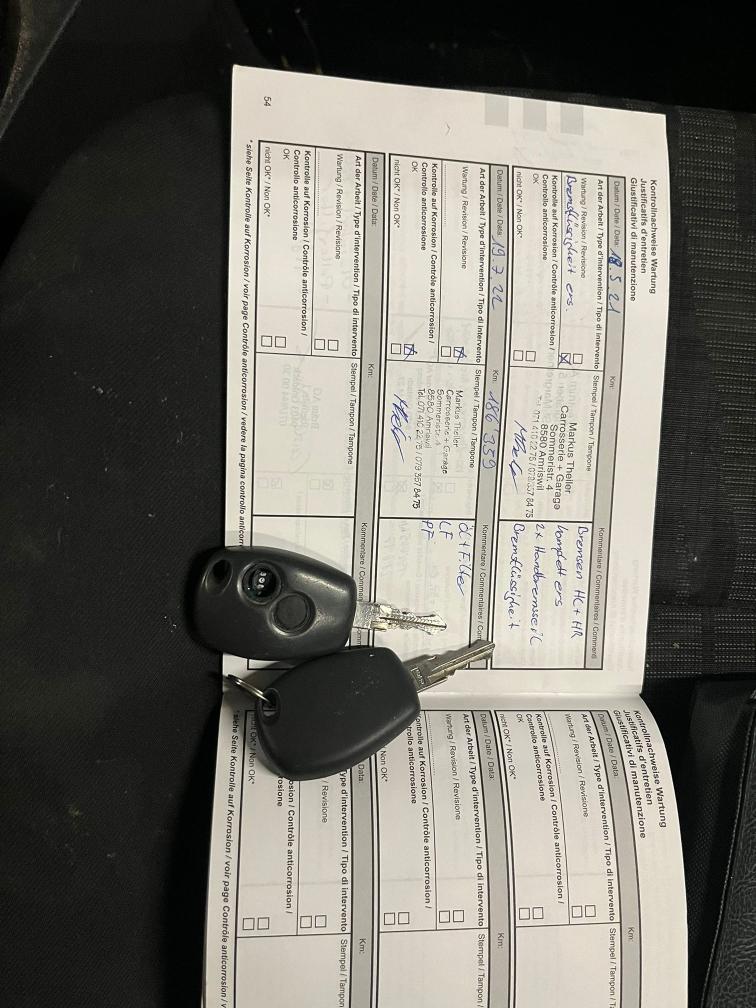 Kontrollnachweise Wartung
Justificatifs d'entretien
Giustificativi di manutenzione
Datum / Date / Data: 18.5 21 Km:
Art der Arbeit / Type d'intervention / Tipo di intervento
Stempel / Tampon / Tampone
Kommentare / Commentaires / Commenti
Wartung / Revision / Revisione
Bremsflüssigkeit ers.
Kontrolle auf Korrosion / Contrôle anticorrosion /
Controllo anticorrosione
OK
nicht OK* / Non OK*
Markus Theiler
Carrosserie + Garage
Sommeristr. 4
8580 Amriswil
Tel. 071 410 22 75 / 079 357 84 75
Bremsen HL + HR
komplett ers
2x Handbremsseil
Bremsflüssigkeit
Datum / Date / Data: 19.7 22 Km: 186'359
Art der Arbeit / Type d'intervention / Tipo di intervento
Stempel / Tampon / Tampone
Kommentare / Commentaires / Com
Wartung / Revision / Revisione
Kontrolle auf Korrosion / Contrôle anticorrosion /
Controllo anticorrosione
OK
nicht OK* / Non OK*
Markus Theiler
Carrosserie + Garage
Sommeristr. 4
8580 Amriswil
Tel. 071 410 22 75 / 079 357 84 75
Öl + Filter
LF
PF
Datum / Date / Data: Km:
Art der Arbeit / Type d'intervention / Tipo di intervento
Stempel / Tampon / Tampone
Kommentare / Commen
Wartung / Revision / Revisione
Kontrolle auf Korrosion / Contrôle anticorrosion /
Controllo anticorrosione
OK
nicht OK* / Non OK*
* siehe Seite Kontrolle auf Korrosion / voir page Contrôle anticorrosion / vedere la pagina controllo anticorr
54
Kontrollnachweise Wartung
Justificatifs d'entretien
Giustificativi di manutenzione
Datum / Date / Data: Km:
Art der Arbeit / Type d'intervention / Tipo di intervento
Stempel / Tampon / T
Wartung / Revision / Revisione
Kontrolle auf Korrosion / Contrôle anticorrosion /
Controllo anticorrosione
OK
nicht OK* / Non OK*
Datum / Date / Data: Km:
Art der Arbeit / Type d'intervention / Tipo di intervento
Stempel / Tampon
Wartung / Revision / Revisione
Kontrolle auf Korrosion / Contrôle anticorrosion /
trollo anticorrosione
Non OK*
Data: Km:
ype d'intervention / Tipo di intervento
Stempel / Tampon
/ Revisione
osion / Contrôle anticorrosion /
rosione
OK* / Non OK*
* siehe Seite Kontrolle auf Korrosion / voir page Contrôle anticorrosion / v